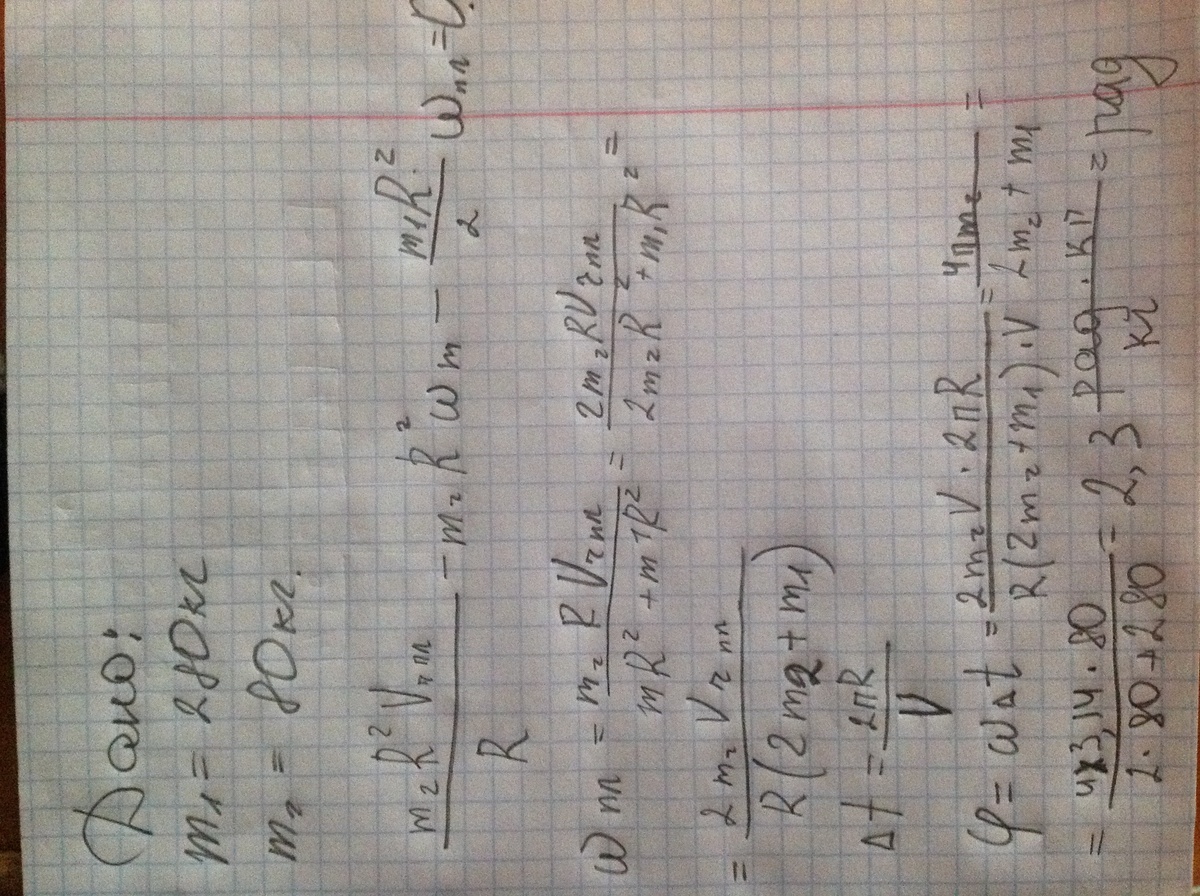 Дано:
m₁ = 280кг
m₂ = 80кг.
m₂R²Vчпл / R − m₂R²ωm − m₁R²/2 ωпл = 0
ωпл = m₂RVчпл / mR² + m1R² = 2m₂RVчпл / 2m₂R² + m₁R² =
= 2m₂Vчпл / R(2m2 + m₁)
Δt = 2πR / V
φ = ωΔt = 2m₂V · 2πR / R(2m₂ + m₁)·V = 4πm₂ / 2m₂ + m₁ =
= 4x3,14 · 80 / 2·80 + 280 = 2,3 рад · кг / кг = рад